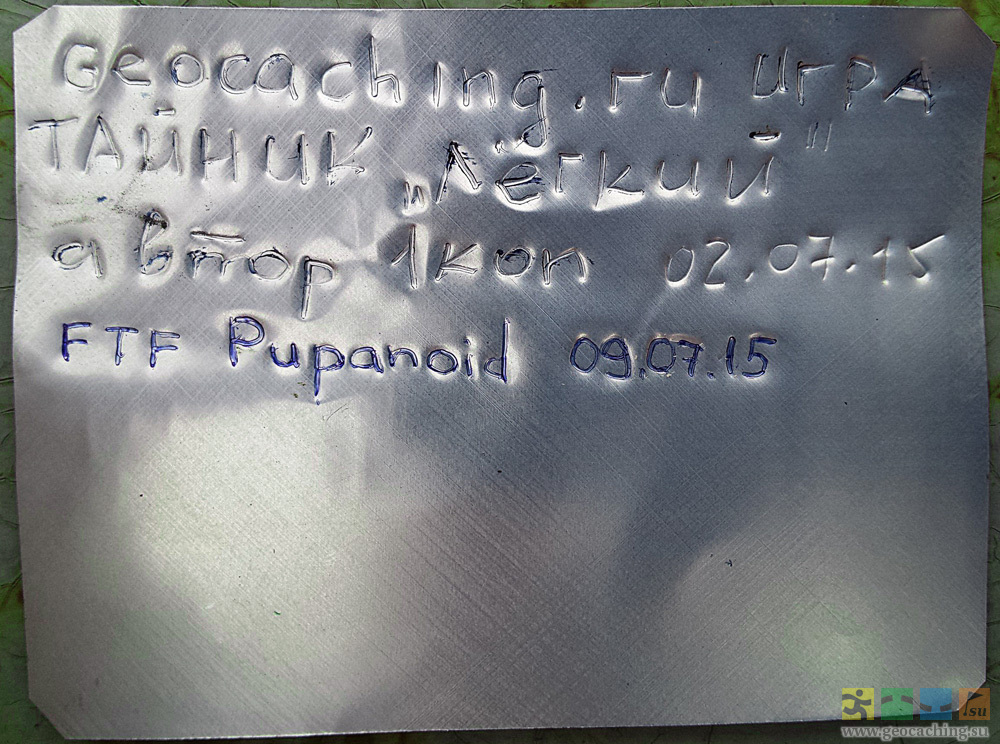 Geocaching.ru игрА
ТАЙНИК „Лёгкий"
автор 1коп 02.07.15
FTF Pupanoid 09.07.15
su
www.geocaching.su